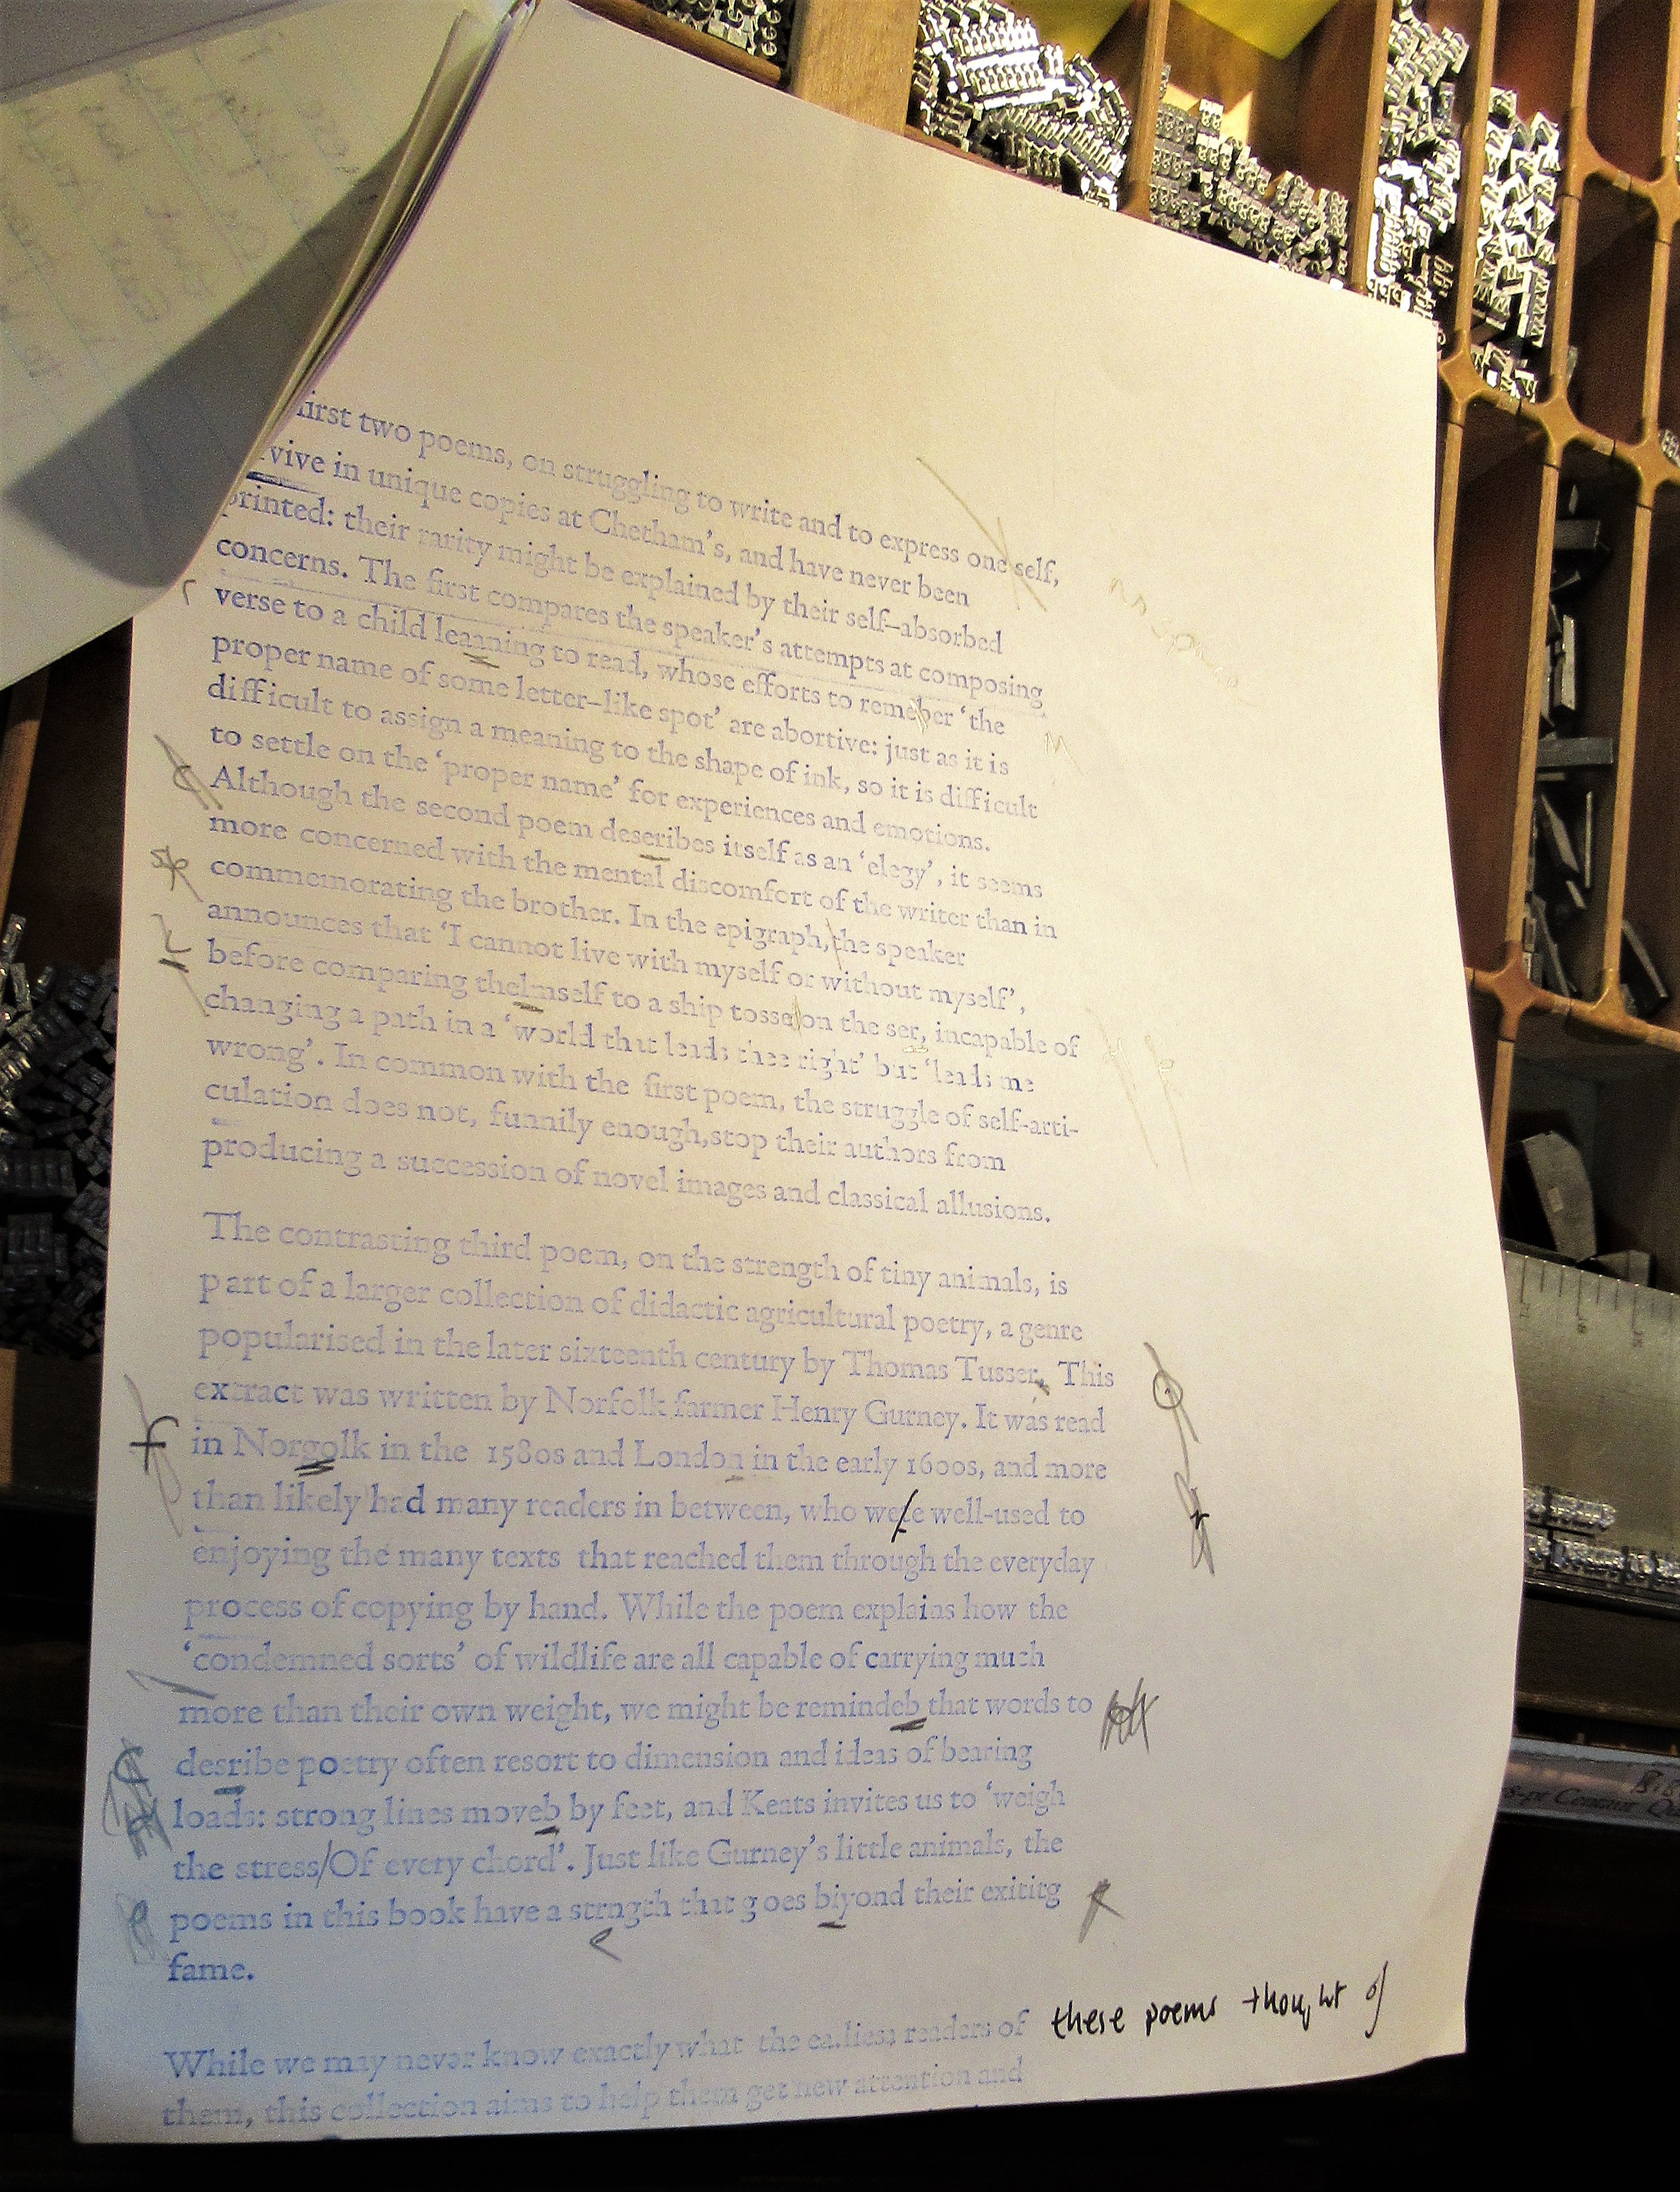 first two poems, on struggling to write and to express one self,
vive in unique copies at Chetham's, and have never been
printed: their rarity might be explained by their self-absorbed
concerns. The first compares the speaker's attempts at composing
verse to a child leanning to read, whose efforts to remeber 'the
proper name of some letter-like spot' are abortive: just as it is
difficult to assign a meaning to the shape of ink, so it is difficult
to settle on the 'proper name' for experiences and emotions.
Although the second poem deseribes itself as an 'elegy', it seems
more concerned with the mental discomfort of the writer than in
commemorating the brother. In the epigraph, the speaker
announces that 'I cannot live with myself or without myself',
before comparing thelmself to a ship tosse on the ser, incapable of
changing a path in a 'world that leads thee right' but 'leads me
wrong'. In common with the first poem, the struggle of self-arti-
culation does not, funnily enough,stop their authors from
producing a succession of novel images and classical allusions.
The contrasting third poem, on the strength of tiny animals, is
part of a larger collection of didactic agricultural poetry, a genre
popularised in the later sixteenth century by Thomas Tusser, This
extract was written by Norfolk farmer Henry Gurney. It was read
in Norgolk in the 1580s and London in the early 1600s, and more
than likely had many readers in between, who were well-used to
enjoying the many texts that reached them through the everyday
process of copying by hand. While the poem explains how the
'condemned sorts' of wildlife are all capable of carrying much
more than their own weight, we might be remindeb that words to
desribe poetry often resort to dimension and ideas of bearing
loads: strong lines moveb by feet, and Keats invites us to 'weigh
the stress/Of every chord'. Just like Gurney's little animals, the
poems in this book have a strngth that goes biyond their exititg
fame.
While we may never know exactly what the earliest readers of these poems thought of
them, this collection aims to help them get new attention and